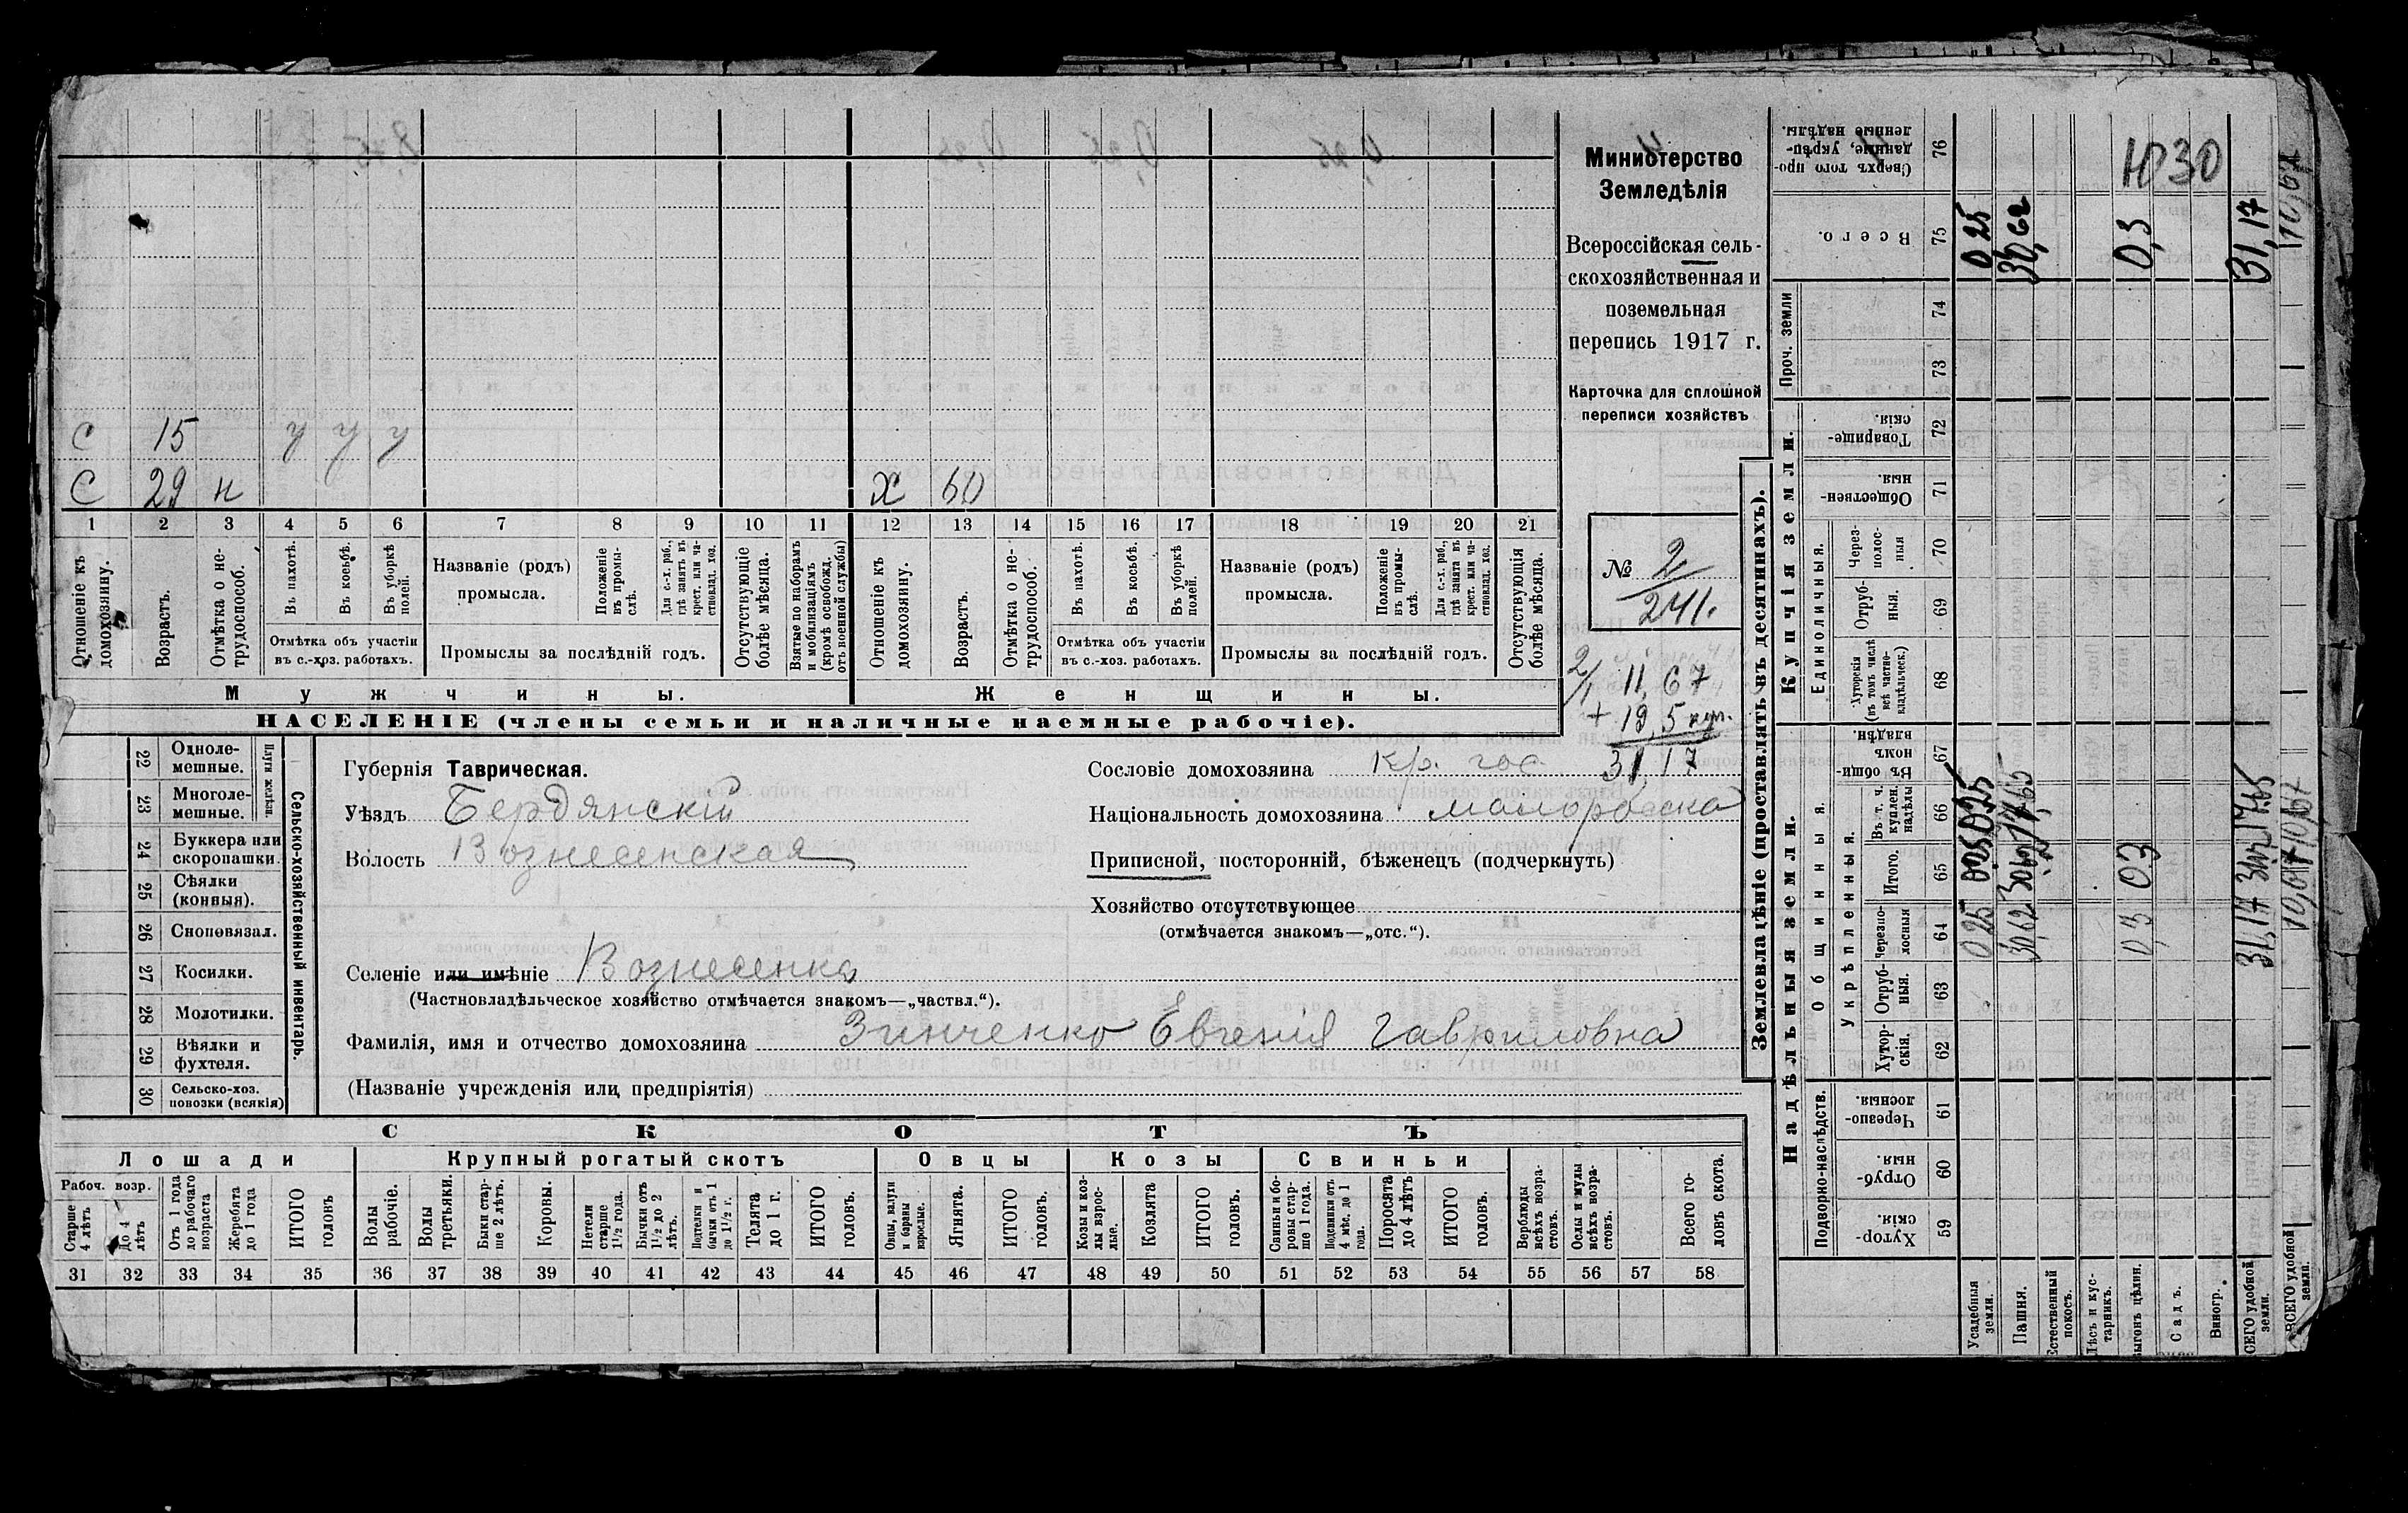 Министерство
Земледѣлія
Всероссійская сель-
скохозяйственная и
поземельная
перепись 1917 г.
Карточка для сплошной
переписи хозяйствъ
№ 2
241.
2/1 11,67
+ 19,5 куп.
31,17
С 15 у у у
С 29 н
х 60
1 2 3 4 5 6 7 8 9 10 11 12 13 14 15 16 17 18 19 20 21
Отношеніе къ домохозяину.
Возрастъ.
Отмѣтка о не-трудоспособ.
Въ пахотѣ.
Въ косьбѣ.
Въ уборкѣ полей.
Отмѣтка объ участіи
въ с.-хоз. работахъ.
Названіе (родъ)
промысла.
Положеніе въ промы-слѣ.
Для с.-х. раб., гдѣ занятъ въ крест. или ча-стновлад. хоз.
Промыслы за послѣдній годъ.
Отсутствующіе болѣе мѣсяца.
Взятые по наборамъ и мобилизаціямъ (кромѣ освобожд. отъ военной службы)
Отношеніе къ домохозяину.
Возрастъ.
Отмѣтка о не-трудоспособ.
Въ пахотѣ.
Въ косьбѣ.
Въ уборкѣ полей.
Отмѣтка объ участіи
въ с.-хоз. работахъ.
Названіе (родъ)
промысла.
Положеніе въ промы-слѣ.
Для с.-х. раб., гдѣ занята въ крест. или ча-стновлад. хоз.
Промыслы за послѣдній годъ.
Отсутствующія болѣе мѣсяца.
Мужчины.
Женщины.
НАСЕЛЕНІЕ (члены семьи и наличные наемные рабочіе).
Сельско-хозяйственный инвентарь.
Плуги желѣзн.
22 Одноле-мешные.
23 Многоле-мешные.
24 Буккера или скоропашки.
25 Сѣялки (конныя).
26 Сноповязал.
27 Косилки.
28 Молотилки.
29 Вѣялки и фухтеля.
30 Сельско-хоз. повозки (всякія)
Губернія Таврическая.
Уѣздъ Бердянскій
Волость Вознесенская
Селеніе или имѣніе Вознесенка
(Частновладѣльческое хозяйство отмѣчается знакомъ—„частвл.“).
Фамилія, имя и отчество домохозяина Зинченко Евгенія Гавриловна
(Названіе учрежденія или предпріятія)
Сословіе домохозяина кр. гос.
Національность домохозяина малоросска
Приписной, посторонній, бѣженецъ (подчеркнуть)
Хозяйство отсутствующее
(отмѣчается знакомъ—„отс.“).
СКОТЪ
Лошади
Крупный рогатый скотъ
Овцы
Козы
Свиньи
Рабоч. возр.
Старше 4 лѣтъ
До 4 лѣтъ
Отъ 1 года до рабочаго возраста
Жеребята до 1 года
ИТОГО головъ
Волы рабочіе.
Волы третьяки.
Быки стар-ше 2 лѣтъ.
Коровы.
Нетели старше 1½ года.
Бычки отъ 1½ до 2 лѣтъ.
Подтелки и бычки отъ 1 до 1½ г.
Телята до 1 г.
ИТОГО головъ.
Овцы, валухи и бараны взрослые.
Ягнята.
ИТОГО головъ.
Козы и коз-лы взрос-лые.
Козлята
ИТОГО головъ.
Свиньи и бо-ровы стар-ше 1 года.
Подсвинки отъ 4 мѣс. до 1 года.
Поросята до 4 лѣтъ
ИТОГО головъ.
Верблюды всѣхъ возра-стовъ.
Ослы и мулы всѣхъ возра-стовъ.
Всего го-ловъ скота.
31 32 33 34 35 36 37 38 39 40 41 42 43 44 45 46 47 48 49 50 51 52 53 54 55 56 57 58
Землевладѣніе (проставлять въ десятинахъ).
Надѣльныя земли.
Купчія земли.
Проч. земли
Подворно-наслѣдств.
Общинныя.
Укрѣпленныя.
Единоличныя.
Хутор-скія. 59
Отруб-ныя. 60
Черезпо-лосныя. 61
Хутор-скія. 62
Отруб-ныя. 63
Черезпо-лосныя 64
Итого. 65
Въ т. ч. куплен. надѣлы 66
Въ общин-номъ владѣн. 67
Хуторскія (въ томъ числѣ всѣ частно-владѣльческ.) 68
Отруб-ныя. 69
Через-полос-ныя 70
Обществен-ныя. 71
Товарище-скія. 72
73
74
Всего. 75
Сверхъ того про-данные, укрѣп-ленные надѣлы. 76
Усадебныя земли. 025 025 025
Пашня. 30,62 30,62 30,62
Естественный покосъ.
Лѣсъ и кус-тарникъ.
Выгонъ цѣлин. 0,3 03 0,3
Садъ.
Виногр.
ВСЕГО удобной земли. 31,17 31,17 17,65 31,17
ВСЕГО удобной земли. 10,67 10,67
1030